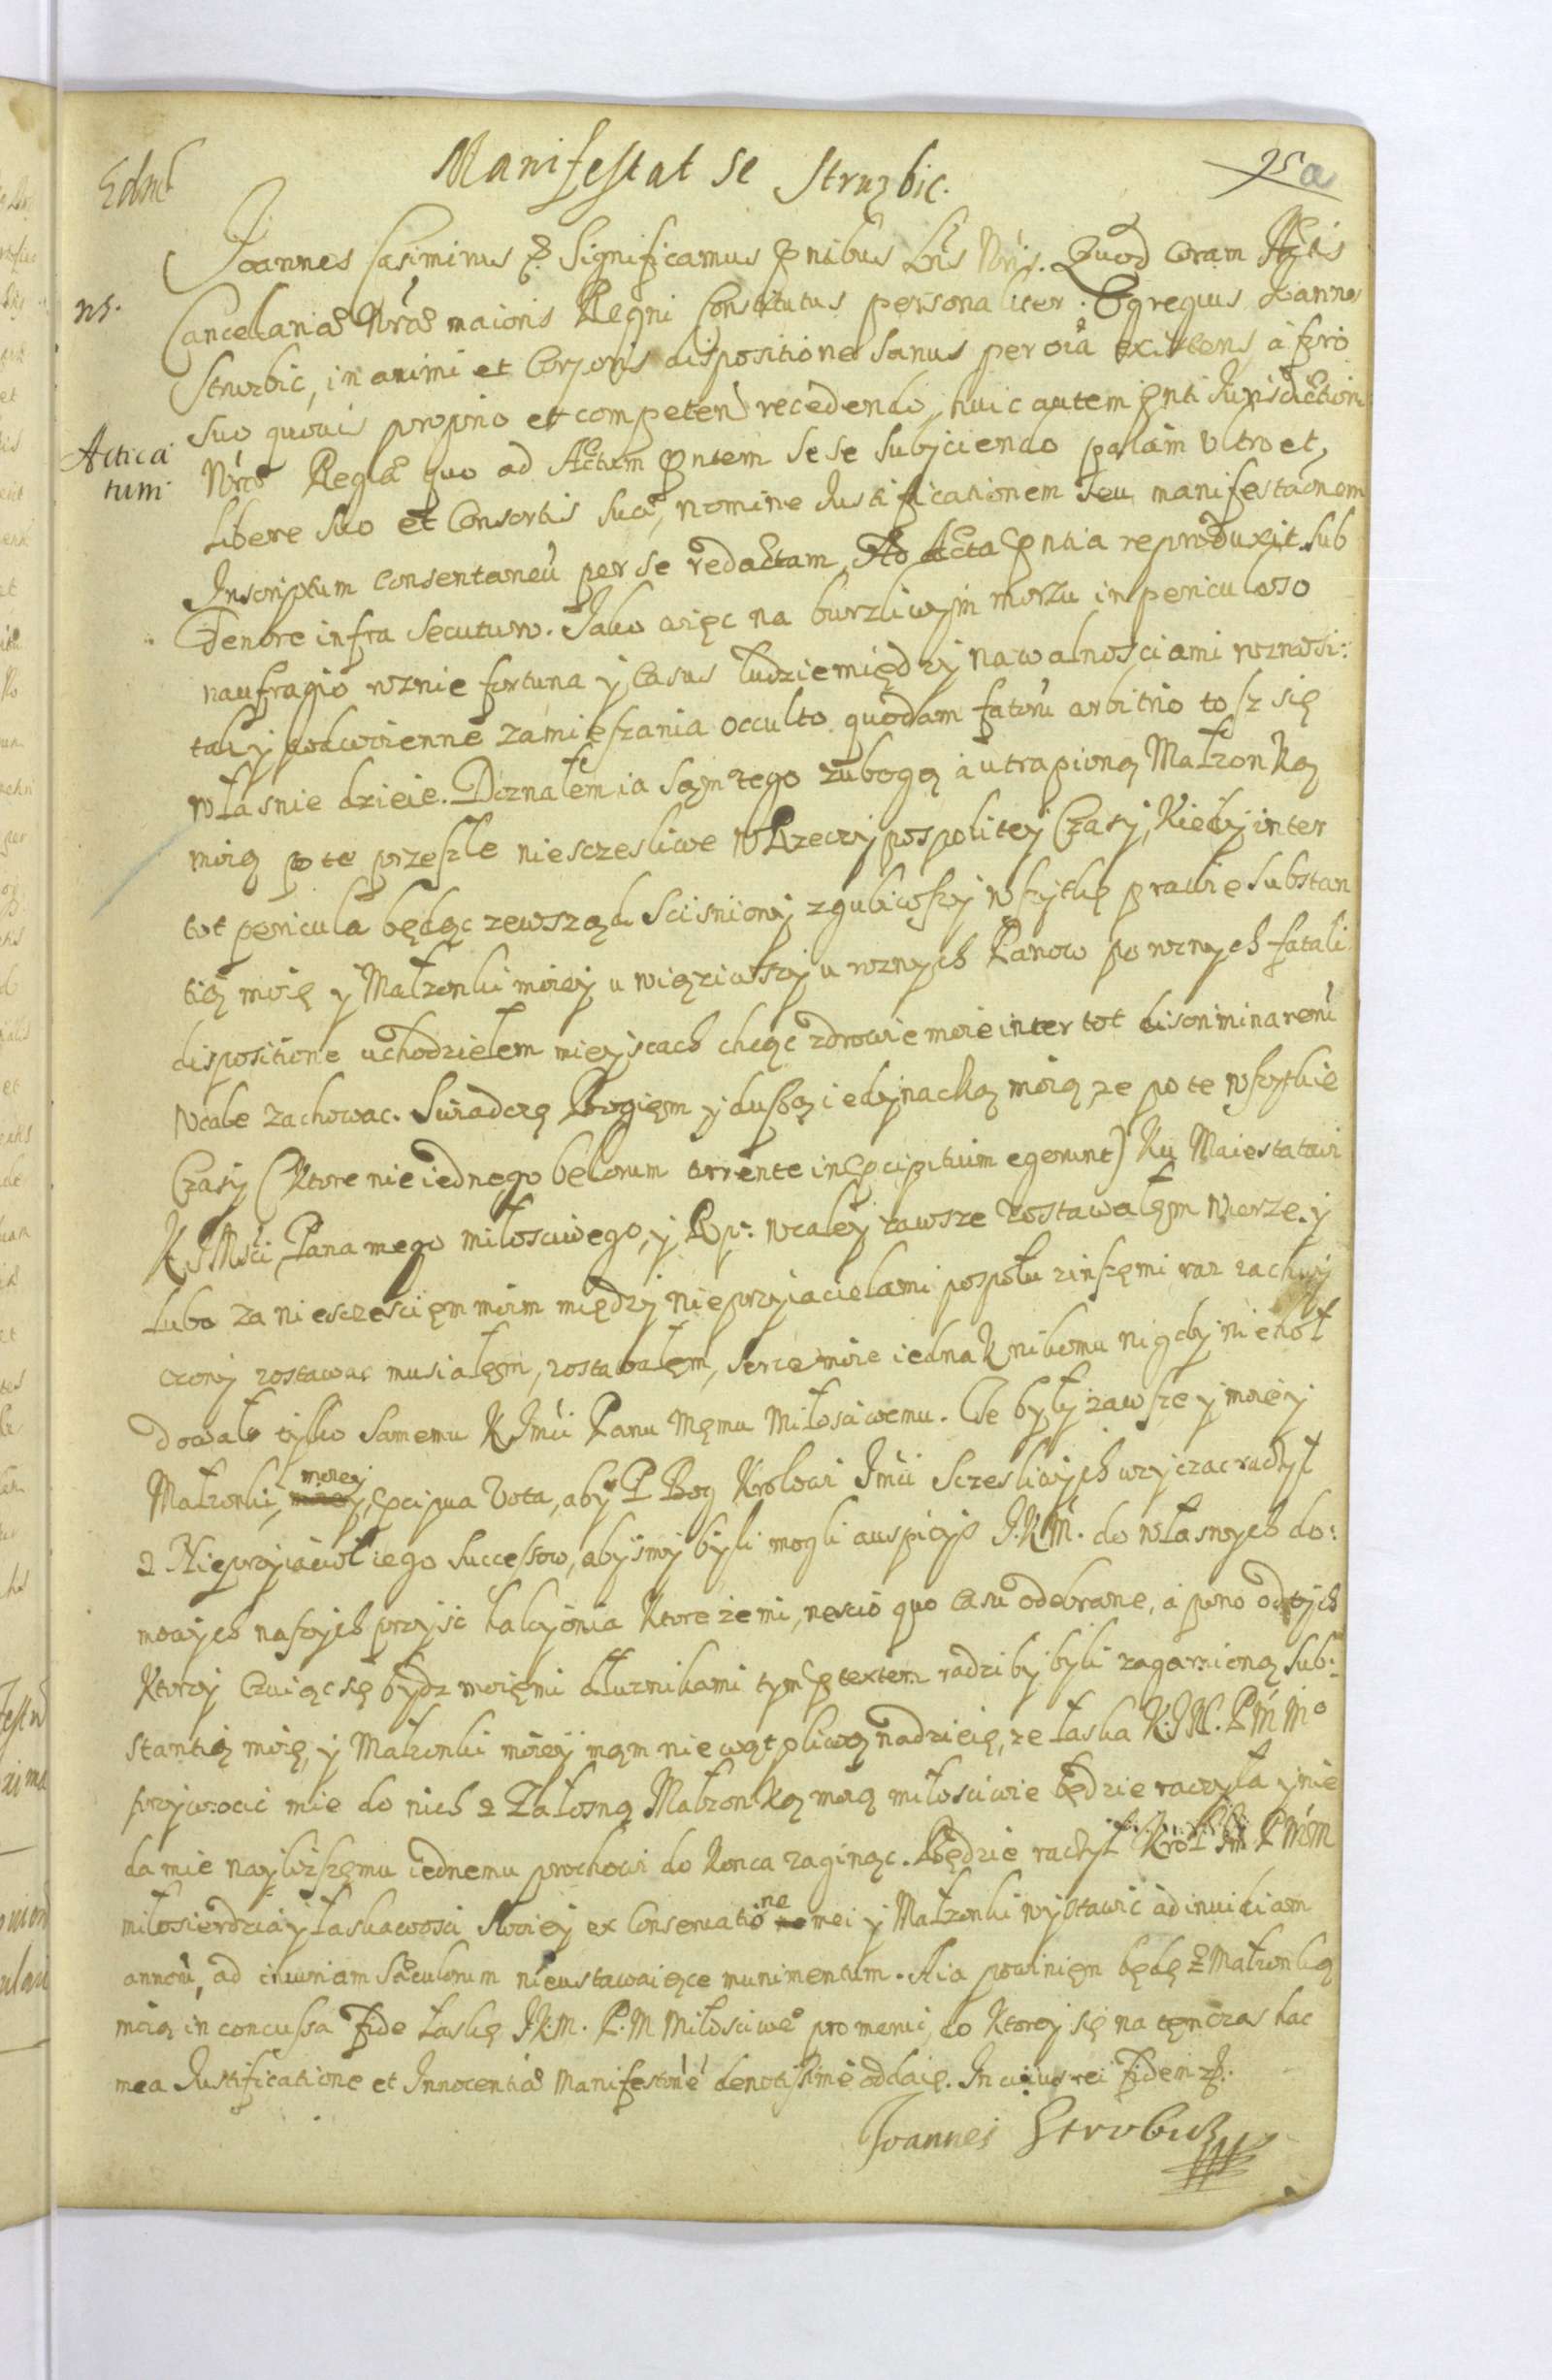 Manifestat se Struzbic.
25 a
Joannes Casimirus &. Significamus pntibus Lris Nris. Quod coram Actis
Cancelariae Nrae maioris Regni Constitutus personaliter. Egregius Joannes
ns.
Struzbic, in animi et Corporis dispositione sanus per oia existens, à foro
suo quouis proprio et competen recedendo, huic autem pnti Jurisdictioni
Acticatum
Nrae Regiae quo ad Actum pntem se se subijciendo palam vltro et
libere suo et Consortis suae, nomine Justificationem seu manifestaonem
Inscriptum consentaneu per se redactam, Ad Acta pntia reproduxit sub
tenore infra secuturo. Jako więc na burzliwym morzu in periculoso
naufragio roznie fortuna y Casus ludzie między nawalnosciami roznosi:
tak y podwoienne zamieszania occulto quodam fatoru arbitrio to sz się
własnie dzieie. Doznałem ia sam tego zubogą à utrapioną Małzonką
moią po te przeszłe niesczesliwe w Rzeczy pospolitey Czasy, kiedy inter
tot pericula będąc zewsząd scisniony zgubiwszy wszytkę prawie substan
tią moię y Małzonki moiey u więziwszy u roznych Panow po roznych fatali
dispositione uchodziełem mieyscach chcąc zdrowie moie inter tot discrimina remu
wcale zachowac. Swiadczę Bogięm y duszą iedynacką moią, ze po te wszytkie
Czasy (ktore nie iednego belorum torrente in pcipitium egerunt) ku Maiestatowi
K J Msci Pana mego miłosciwego, y Rp: wcaley zawsze zostawałęm wierze. y
lubo za niesczescięm moim między nieprzyiacielami pospołu z inszęmi raz zachwy
czony zostawac musiałęm, zostawałęm, serce moie iednak nikomu nigdy nie hoł
dowało tylko samemu K Jmci Panu Męmu Miłosciwemu. Te były zawsze y moiey
Małzonki, moiey pcipua Vota, aby P Bog Krolowi Jmci Sczesliwych uzyczac raczył
z Nieprzyiacioł iego successow, abysmy byli mogli auspicijs J.K.M. do własnych do:
mowych naszych przyisc halcyonia ktore że mi, nescio quo casu odebrane, à pono od tych
ktorzy czuiąc się bydz moięmi dłuznikami tym ptextem radzi by byli zagarnioną sub:
stantią moię, y Małzonki moiey mąm niewątpliwą nadzieię, ze łaska K.J.M. P M Mo
przywrocic mie do nich z Załosną Małzonką moią miłosciwie będzie raczyła y nie
da mie naylizszęmu iednemu prochowi do konca zaginąc. Będzie raczył Krol Jm P M M
miłosierdzia y łaskawosci swoiey ex Conseruatione mei y Małzonki wystawic ad inuidiam
annoru, ad iniuriam saeculorum nieustawaiące munimentum. A ia powinięn będę z Małzonką
moią inconcussa fide łaskę J.K.M. P. M Miłosciwe promerui, do ktorey się na tęn czas hac
mea Justificatione et Innocentiae Manifestne deuotissimè oddaię. In cuius rei fidem &.
Joannes Strvbicz